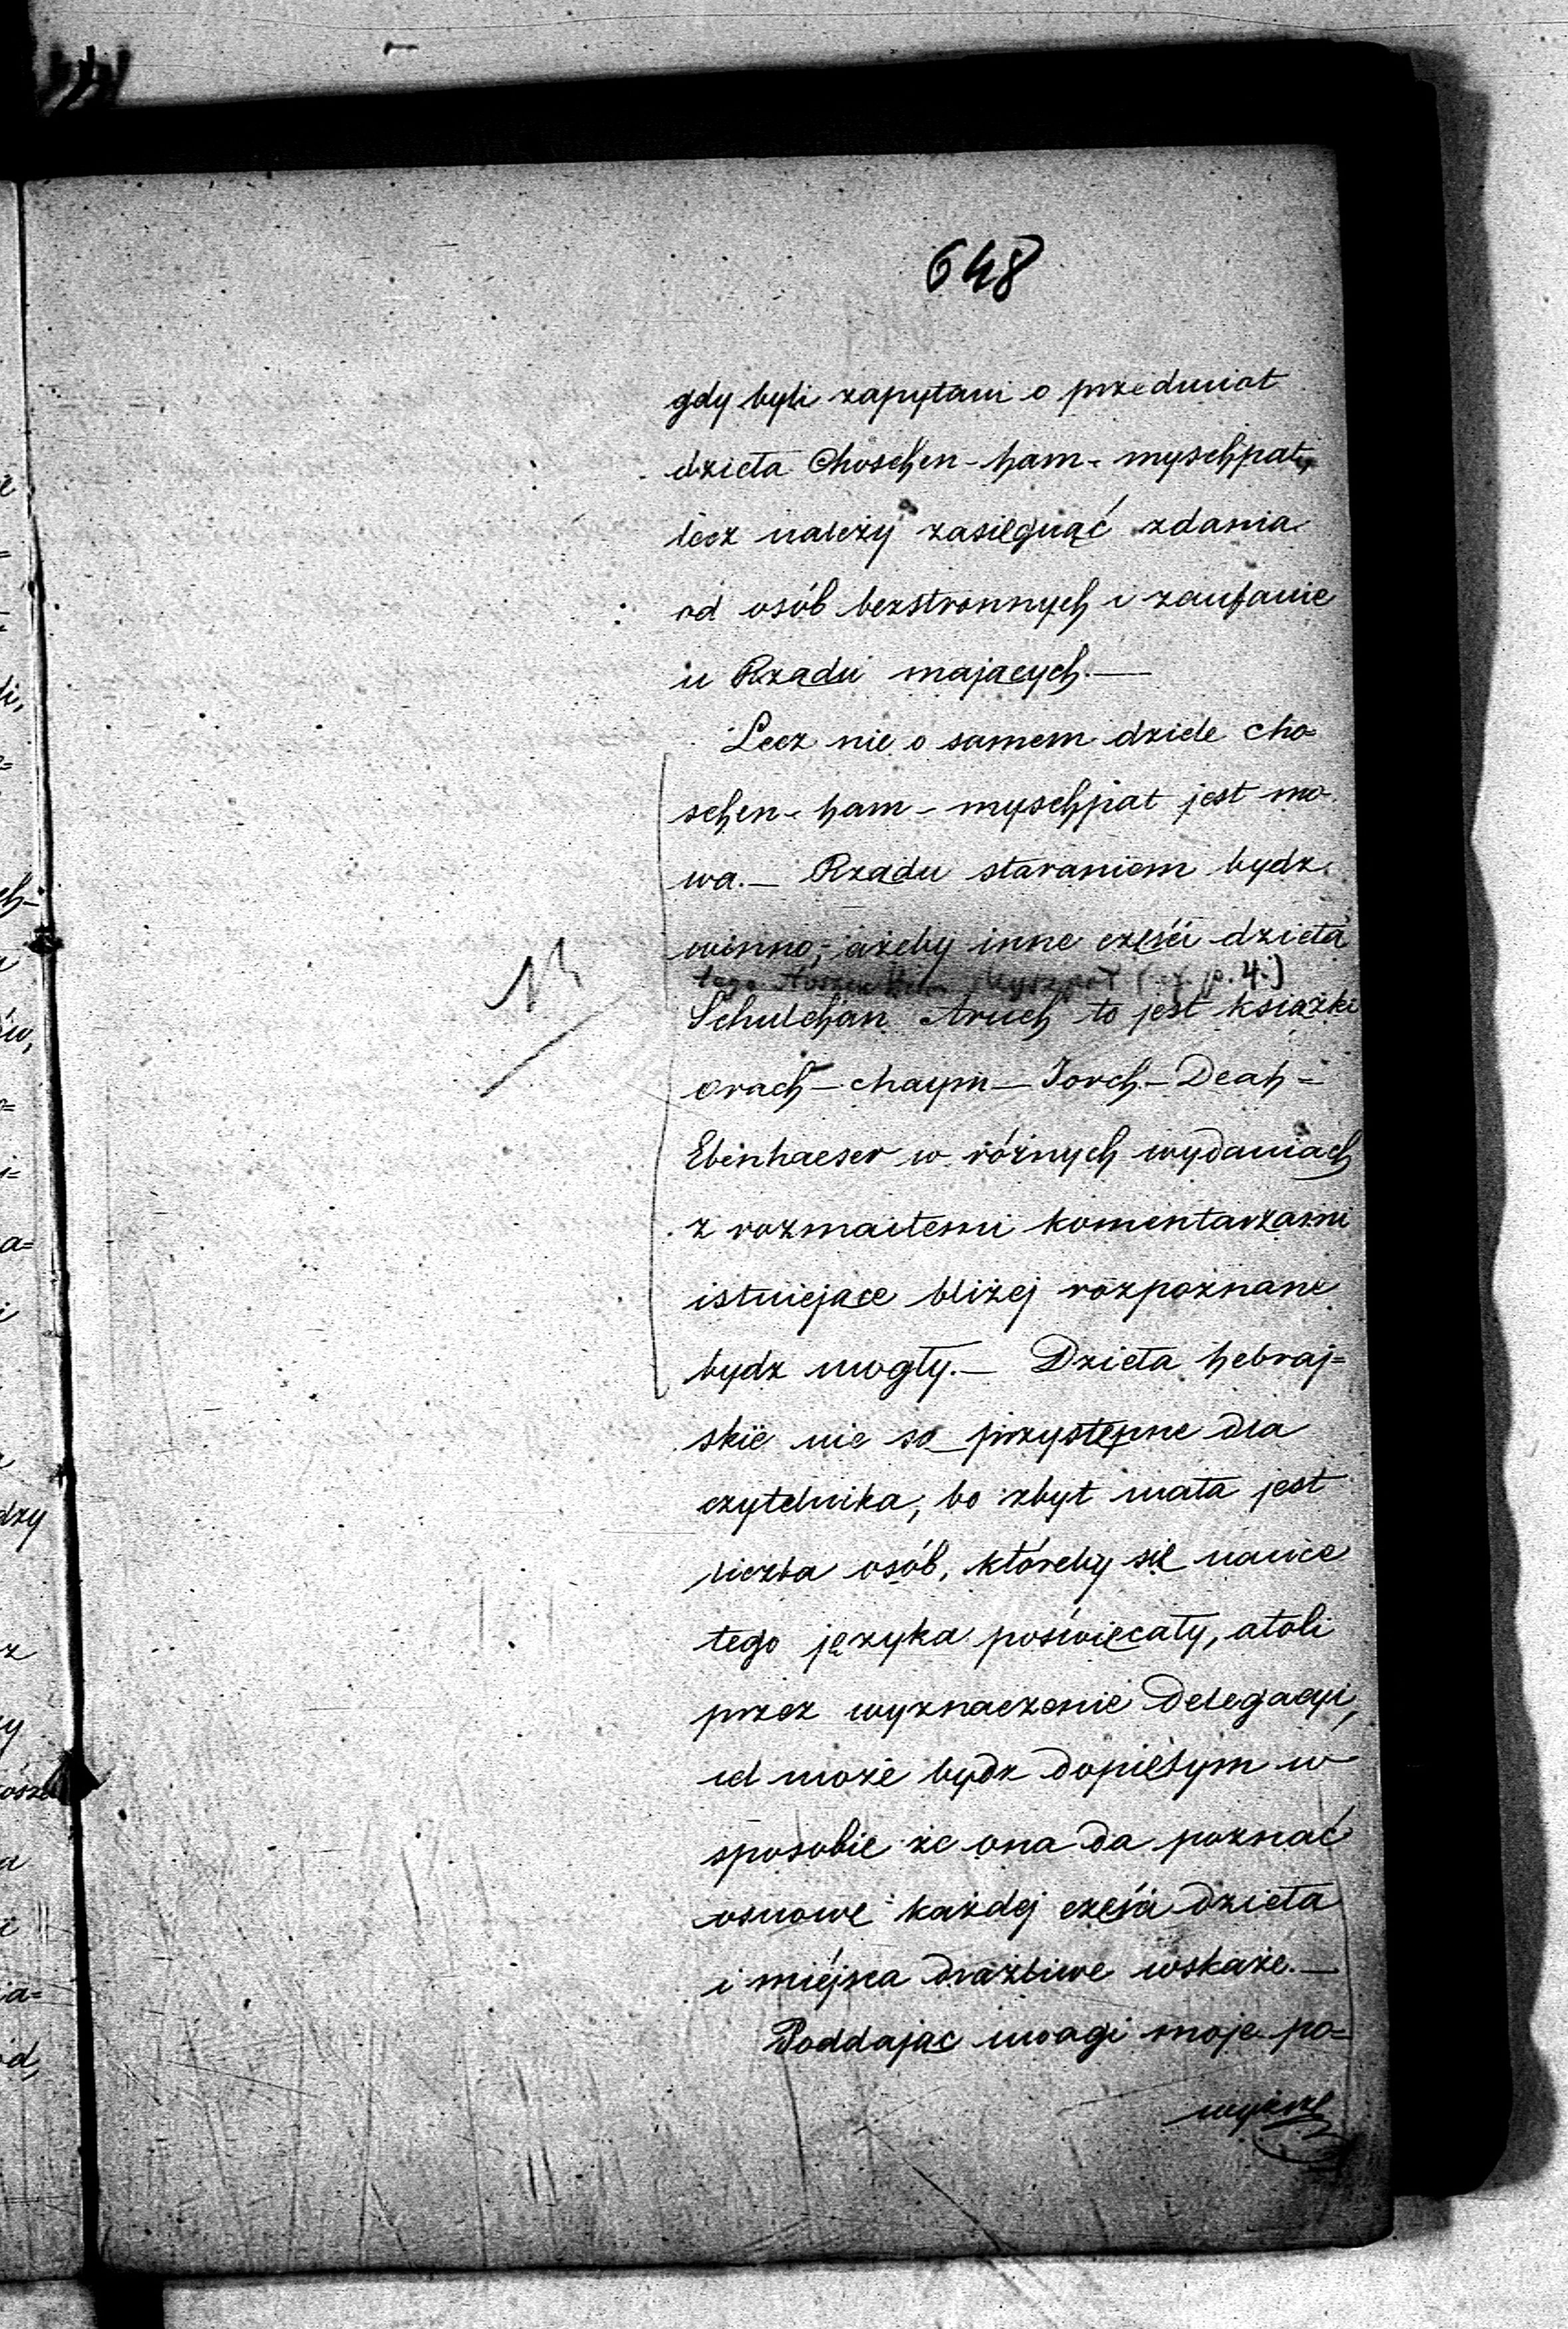 648
gdy byli zapytani o przedmiot
dzieła Choschen-ham-myschpat,
lecz należy zasięgnąć zdania
od osób bezstronnych i zaufanie
u Rządu mających.—
Lecz nie o samem dziele cho=
schen-ham-myschpat jest mo-
wa.— Rządu staraniem bydz
winno, ażeby inne części dzieła
tego p. 4.)
Schulchan Aruch to jest książki
orach—chaym—Joreh—Deah=
Ebenhaeser w różnych wydaniach
z rozmaitemi komentarzami
istniejące bliżej rozpoznane
bydz mogły.— Dzieła hebraj=
skie nie są przystępne dla
czytelnika, bo zbyt mała jest
liczba osób, któreby się nauce
tego języka poświęcały, atoli
przez wyznaczenie Delegacyi,
cel może bydz dopiętym w
sposobie że ona da poznać
osnowę każdej części dzieła
i miejsca drażliwe wskaże.—
Poddając uwagi moje po=
wyższe